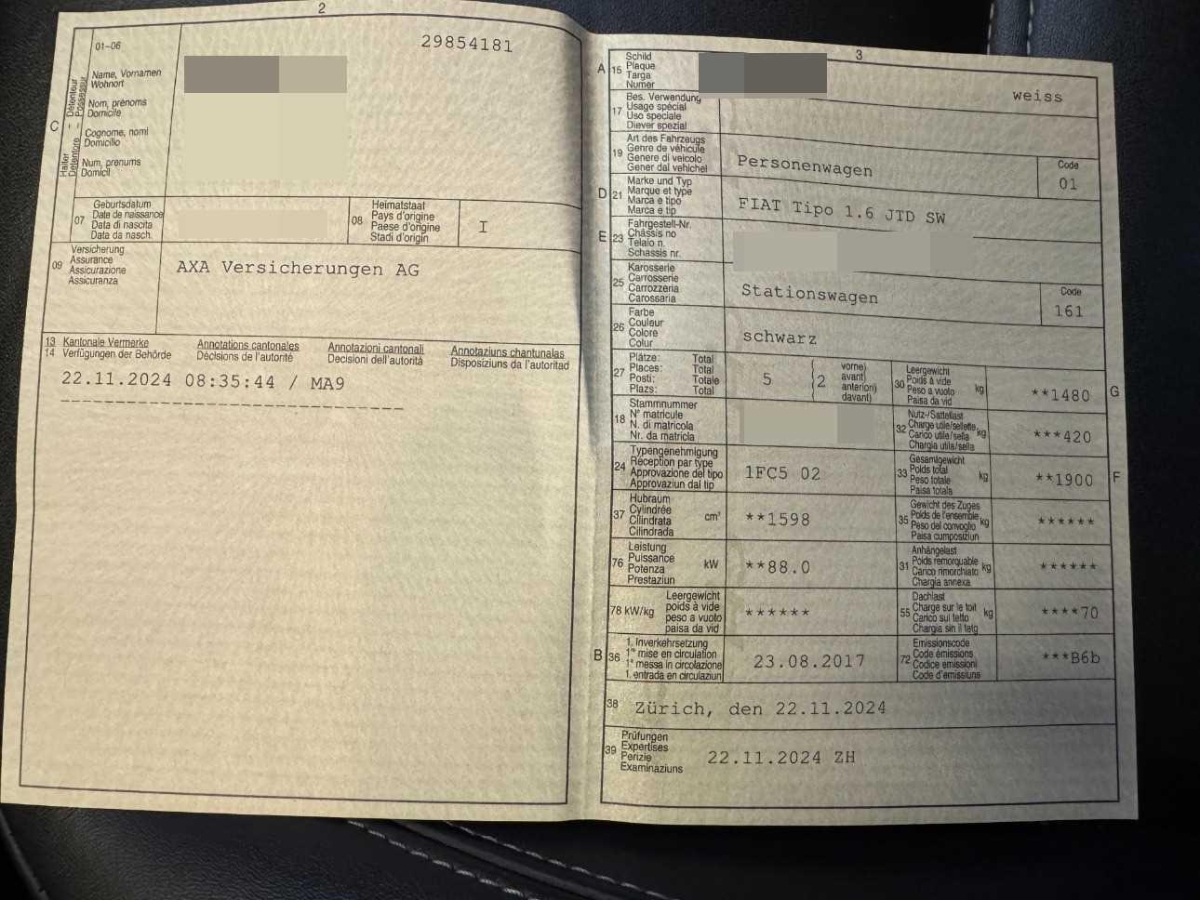 2
01-06
29854181
C
Halter - Détenteur
Detentore - Possessur
Name, Vornamen
Wohnort
Nom, prénoms
Domicile
Cognome, nomi
Domicilio
Num, prenums
Domicil
07
Geburtsdatum
Date de naissance
Data di nascita
Data da nasch.
08
Heimatstaat
Pays d'origine
Paese d'origine
Stadi d'origin
I
09
Versicherung
Assurance
Assicurazione
Assicuranza
AXA Versicherungen AG
13 Kantonale Vermerke Annotations cantonales Annotazioni cantonali Annotaziuns chantunalas
14 Verfügungen der Behörde Décisions de l'autorité Decisioni dell'autorità Disposiziuns da l'autoritad
22.11.2024 08:35:44 / MA9
3
A 15
Schild
Plaque
Targa
Numer
weiss
17
Bes. Verwendung
Usage spécial
Uso speciale
Diever spezial
19
Art des Fahrzeugs
Genre de véhicule
Genere di veicolo
Gener dal vehichel
Personenwagen
Code
01
D 21
Marke und Typ
Marque et type
Marca e tipo
Marca e tip
FIAT Tipo 1.6 JTD SW
E 23
Fahrgestell-Nr.
Châssis no
Telaio n.
Schassis nr.
25
Karosserie
Carrosserie
Carrozzeria
Carossaria
Stationswagen
Code
161
26
Farbe
Couleur
Colore
Colur
schwarz
27
Plätze: Total
Places: Total
Posti: Totale
Plazs: Total
5
2
vorne)
avant)
anteriori)
davant)
30
Leergewicht
Poids à vide
Peso a vuoto
Paisa da vid
kg
**1480
G
18
Stammnummer
N° matricule
N. di matricola
Nr. da matricla
32
Nutz-/Sattellast
Charge utile/sellette
Carico utile/sella
Chargia utila/sella
kg
***420
24
Typengenehmigung
Réception par type
Approvazione del tipo
Approvaziun dal tip
1FC5 02
33
Gesamtgewicht
Poids total
Peso totale
Paisa totala
kg
**1900
F
37
Hubraum
Cylindrée
Cilindrata
Cilindrada
cm³
**1598
35
Gewicht des Zuges
Poids de l'ensemble
Peso del convoglio
Paisa cumposiziun
kg
******
76
Leistung
Puissance
Potenza
Prestaziun
kW
**88.0
31
Anhängelast
Poids remorquable
Carico rimorchiato
Chargia annexa
kg
******
78 kW/kg
Leergewicht
poids à vide
peso a vuoto
paisa da vid
******
55
Dachlast
Charge sur le toit
Carico sul tetto
Chargia sin il tetg
kg
****70
B 36
1. Inverkehrsetzung
1re mise en circulation
1a messa in circolazione
1. entrada en circulaziun
23.08.2017
72
Emissionscode
Code émissions
Codice emissioni
Code d'emissiuns
***B6b
38
Zürich, den 22.11.2024
39
Prüfungen
Expertises
Perizie
Examinaziuns
22.11.2024 ZH